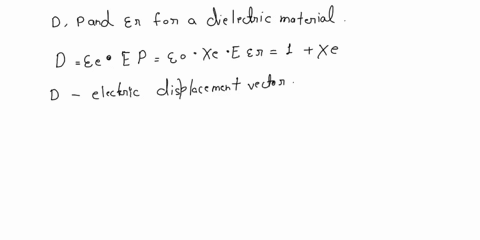 D, P and εr for a dielectric material.
D = εe • E P = εo • Xe • E εr = 1 + Xe
D - electric displacement vector.